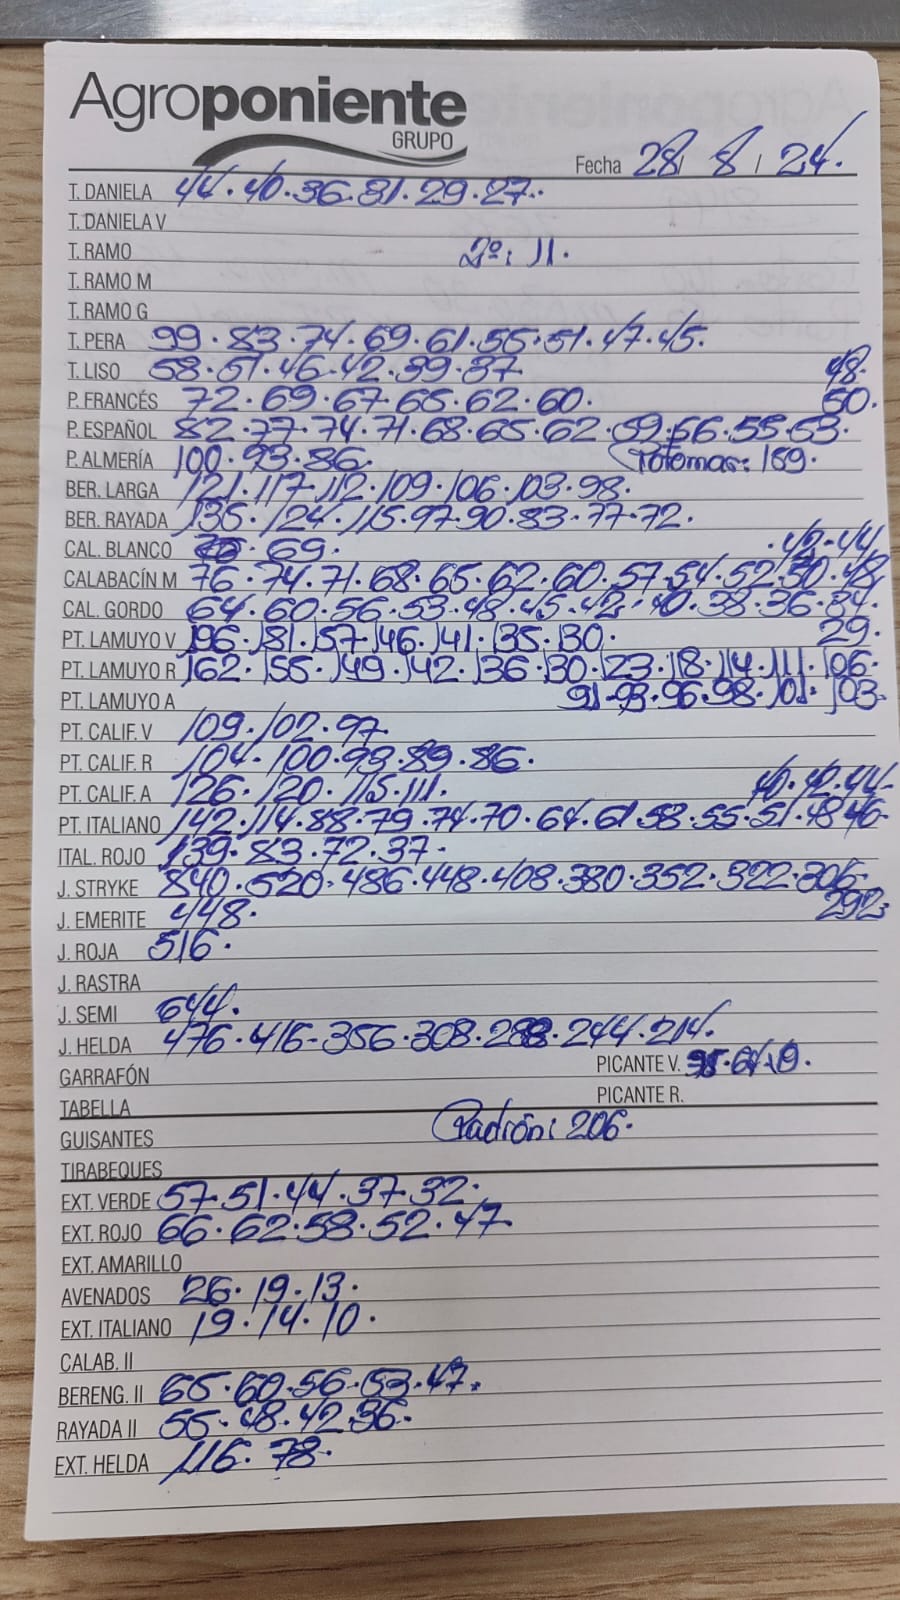 Agroponiente
GRUPO
Fecha 28/ 8 / 24.
T. DANIELA 44.40.36.31.29.27.
T. DANIELA V
T. RAMO 2º: 11.
T. RAMO M
T. RAMO G
T. PERA 99.83.74.69.61.55.51.47.45.
T. LISO 58.51.46.42.39.37 48.
P. FRANCÉS 72.69.67.65.62.60. 50.
P. ESPAÑOL 82.77.74.71.68.65.62.59.56.55.53.
P. ALMERÍA 100.93.86. Totomac: 159.
BER. LARGA 121.117.112.109.106.103.98.
BER. RAYADA 135.124.115.97.90.83.77.72.
CAL. BLANCO 69. .42.44
CALABACÍN M 76.74.71.68.65.62.60.57.54.52.50.48
CAL. GORDO 64.60.56.53.48.45.42.40.38.36.34.
PT. LAMUYO V 196.181.157.146.141.135.130. 29.
PT. LAMUYO R 162.155.149.142.136.130.123.118.114.111.106.
PT. LAMUYO A 91.93.96.98.101.103.
PT. CALIF. V 109.102.97
PT. CALIF. R 104.100.93.89.86.
PT. CALIF. A 126.120.115.111. 40.42.44-
PT. ITALIANO 142.114.88.79.74.70.64.61.58.55.51.48.46-
ITAL. ROJO 139.83.72.37.
J. STRYKE 840.520.486.448.408.380.352.322.306-
J. EMERITE 448. 292
J. ROJA 516.
J. RASTRA
J. SEMI 644.
J. HELDA 476.416-356.308.288.244.214.
GARRAFÓN PICANTE V. 64.19.
TABELLA PICANTE R.
GUISANTES Padrón: 206.
TIRABEQUES
EXT. VERDE 57.51.44.37.32.
EXT. ROJO 66.62.58.52.47
EXT. AMARILLO
AVENADOS 26.19.13.
EXT. ITALIANO 19.14.10.
CALAB. II
BERENG. II 65.60.56.53.47.
RAYADA II 55.48.42.36.
EXT. HELDA 116.78.